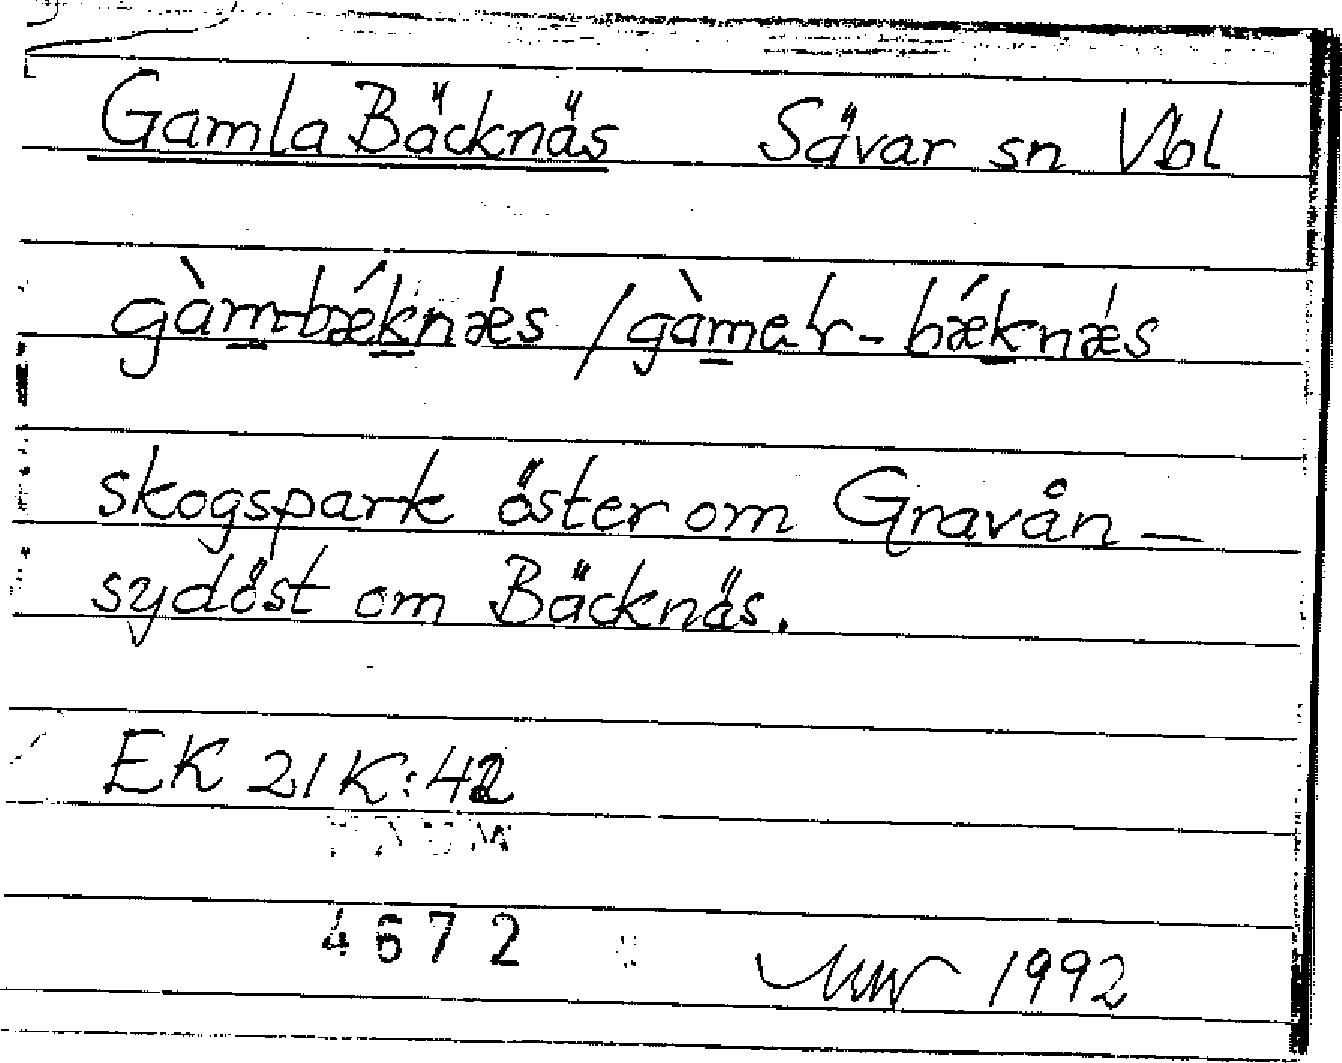 Gamla Bäcknäs Sävar sn Vbl
gàm-bǽknǽs / gàmaɫr-bǽknǽs
skogspark öster om Gravån –
sydöst om Bäcknäs.
EK 21K:42
4672
1992